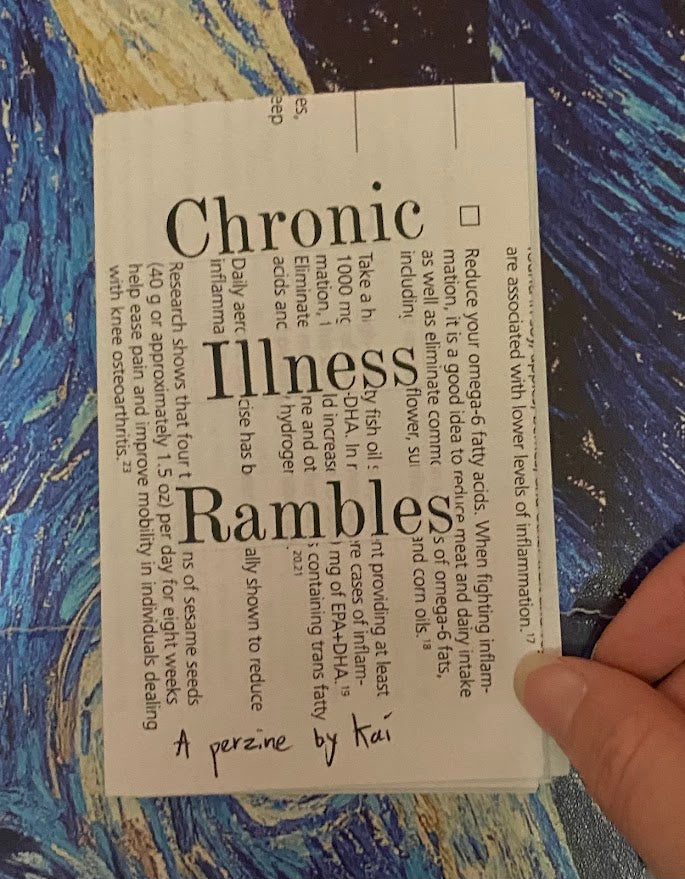 Chronic
Illness
Rambles
A perzine by Kai
are associated with lower levels of inflammation.17
Reduce your omega-6 fatty acids. When fighting inflam-
mation, it is a good idea to reduce meat and dairy intake
as well as eliminate of omega-6 fats,
including and corn oils.18
Take a fish oil providing at least
1000 DHA. In cases of inflam-
mation, mg of EPA+DHA.19
Eliminate and containing trans fatty
acids 20,21
Daily shown to reduce
Research shows that four of sesame seeds
(40 g or approximately 1.5 oz) per day for eight weeks
help ease pain and improve mobility in individuals dealing
with knee osteoarthritis.23